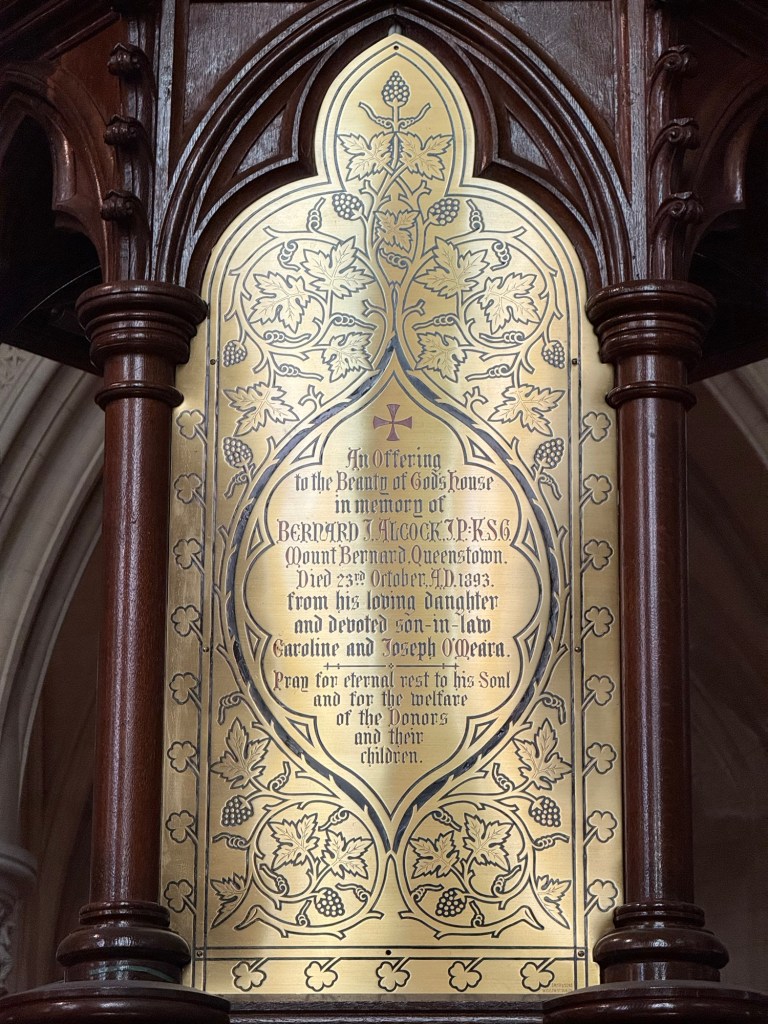 An Offering
to the Beauty of God's House
in memory of
BERNARD J. ALCOCK, J.P: K.S.G.
Mount Bernard, Queenstown.
Died 23rd October, A.D. 1893.
from his loving daughter
and devoted son-in-law
Caroline and Joseph O'Meara.
Pray for eternal rest to his Soul
and for the welfare
of the Donors
and their
children.